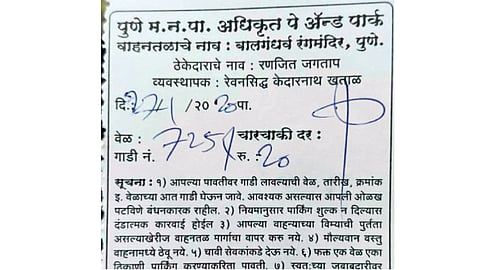 पुणे म.न.पा. अधिकृत पे ॲन्ड पार्क
वाहनतळाचे नाव : बालगंधर्व रंगमंदिर, पुणे.
ठेकेदाराचे नाव : रणजित जगताप
व्यवस्थापक : रेवनसिद्ध केदारनाथ खताळ
दि. /२० २० पा.
वेळ : 725 चारचाकी दर :
गाडी नं. रु. :20
सूचना : १) आपल्या पावतीवर गाडी लावल्याची वेळ, तारीख, क्रमांक
इ. वेळाच्या आत गाडी घेऊन जावे. आवश्यक असल्यास आपली ओळख
पटविणे बंधनकारक राहील. २) नियमानुसार पार्किंग शुल्क न दिल्यास
दंडात्मक कारवाई होईल ३) आपल्या वाहनाच्या विम्याची पुर्तता
असल्याखेरीज वाहनतळ पार्गाचा वापर करु नये. ४) मौल्यवान वस्तु
वाहनामध्ये ठेवू नये. ५) चावी सेवकांकडे देऊ नये. ६) फक्त एक वेळा एका
ठिकाणी पार्किंग करण्याकरिता पावती. ७) स्वतःच्या जबाबदारीवर